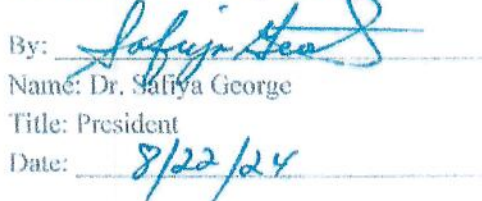 By: Safiya Geo
Name: Dr. Safiya George
Title: President
Date: 8/22/24